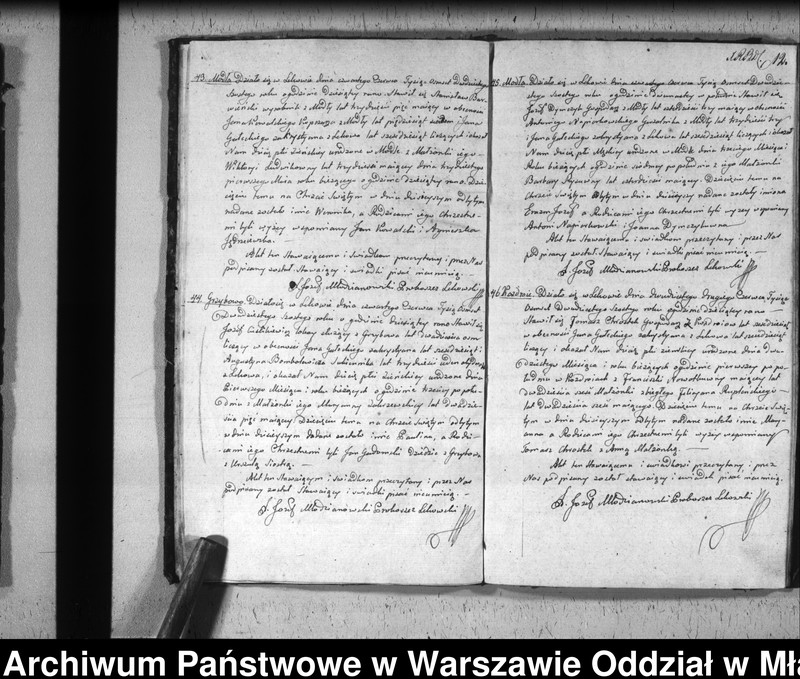 12.
43. Modła. Działo się w Lekowie dnia czwartego Czerwca Tysiąc Osmset Dwudziestego
Szostego roku o godzinie dziesiątey rano Stawił się Stanisław
wyrobnik z Modły lat trzydzieści pięć maiący w obecności
Jana Kowalskiego z Modły lat pięćdziesiąt i Jana
Gutskiego zakrystyana z Lekowa lat sześćdziesiąt liczących i okazał
Nam dziecię płci żeńskiey urodzone w Modle z Małżonki iego
Wiktoryi lat trzydzieści maiącey dnia trzydziestego
pierwszego Maia roku bieżącego o godzinie dziesiątey rano. Dzie-
cięciu temu na Chrzcie Swiętym w dniu dzisieyszym odbytym
nadane zostało imie Weronika, a Rodzicami iego Chrzestne-
mi byli wyżey wspomniany Jan Kowalski i Agnieszka
Akt ten Stawaiącemu i świadkom przeczytany i przez Nas
podpisany został Stawaiący i świadki pisać nieumieią. –
X. Jozef Młodzianowski Proboszcz Lekowski
44. Grzybowo. Działo się w Lekowie dnia czwartego Czerwca Tysiąc Osmset
Dwudziestego Szostego roku o godzinie dziesiątey rano Stawił się
Jozef służący z Grzybowa lat dwadzieścia osm
liczący w obecności Jana Gutskiego zakrystyana lat sześćdziesiąt i
Augustyna lat trzydzieści ieden
z Lekowa, i okazał Nam dziecię płci żeńskiey urodzone dnia
Pierwszego Miesiąca i roku bieżących o godzinie trzeciey po połu-
dniu z Małżonki iego Maryanny lat dwadzie-
ścia pięć maiącey. Dziecięciu temu na Chrzcie Swiętym odbytym
w dniu dzisieyszym nadane zostało imie Paulina, a Rodzi-
cami iego Chrzestnemi byli Jan Gadomski Dziedzic z Grzybowa
z Urszulą
Akt ten Stawaiącym i świadkom przeczytany i przez Nas
podpisany został Stawaiący i świadki pisać nieumieią. –
X. Jozef Młodzianowski Proboszcz Lekowski
45. Modła. Działo się w Lekowie dnia Czerwca Tysiąc Osmset Dwudzie-
stego Szostego roku o godzinie w południe Stawił się
Jozef Dymczyk Gospodarz z Modły lat czterdzieści trzy maiący w obecności
Antoniego Napiorkowskiego z Modły lat trzydzieści trzy
i Jana Gutskiego zakrystyana z Lekowa lat sześćdziesiąt liczących i okazał
Nam dziecię płci Męskiey urodzone w Modle dnia trzeciego Miesiąca i
Roku bieżących o godzinie siódmey po południu z iego Małżonki
Barbary lat czterdzieści maiącey. Dziecięciu temu na
Chrzcie Swiętym odbytym w dniu dzisieyszym nadane zostały imiona
Erazm Jozef a Rodzicami iego Chrzestnemi byli wyżey wspomniany
Antoni Napiorkowski i Joanna Dymczykowna
Akt ten Stawaiącemu i świadkom przeczytany i przez Nas
podpisany został Stawaiący i świadki pisać nieumieią.
X. Jozef Młodzianowski Proboszcz Lekowski
46. Działo się w Lekowie dnia Dwudziestego drugiego Czerwca Tysiąc
Osmset Dwudziestego Szostego roku o godzinie dziesiątey rano
Stawił się Tomasz Chrostek Gospodarz lat sześćdziesiąt
w obecności Jana Gutskiego zakrystyana z Lekowa lat sześćdziesiąt
liczący i okazał Nam dziecię płci żeńskiey urodzone dnia dwu-
dziestego Miesiąca i roku bieżących o godzinie pierwszey po po-
łudniu z Franciszki maiącey lat
dwadzieścia sześć Małżonki zbiegłego
lat dwadzieścia sześć maiącego. Dziecięciu temu na Chrzcie Swię-
tym w dniu dzisieyszym odbytym nadane zostało imie Mary-
anna a Rodzicami iego Chrzestnemi byli wyżey wspomniany
Tomasz Chrostek z Anną Małżonką. –
Akt ten Stawaiącemu i świadkowi przeczytany, i przez
Nas podpisany został stawaiący i świadek pisać nieumieią.
X. Jozef Młodzianowski Proboszcz Lekowski
Archiwum Państwowe w Warszawie Oddział w Mła